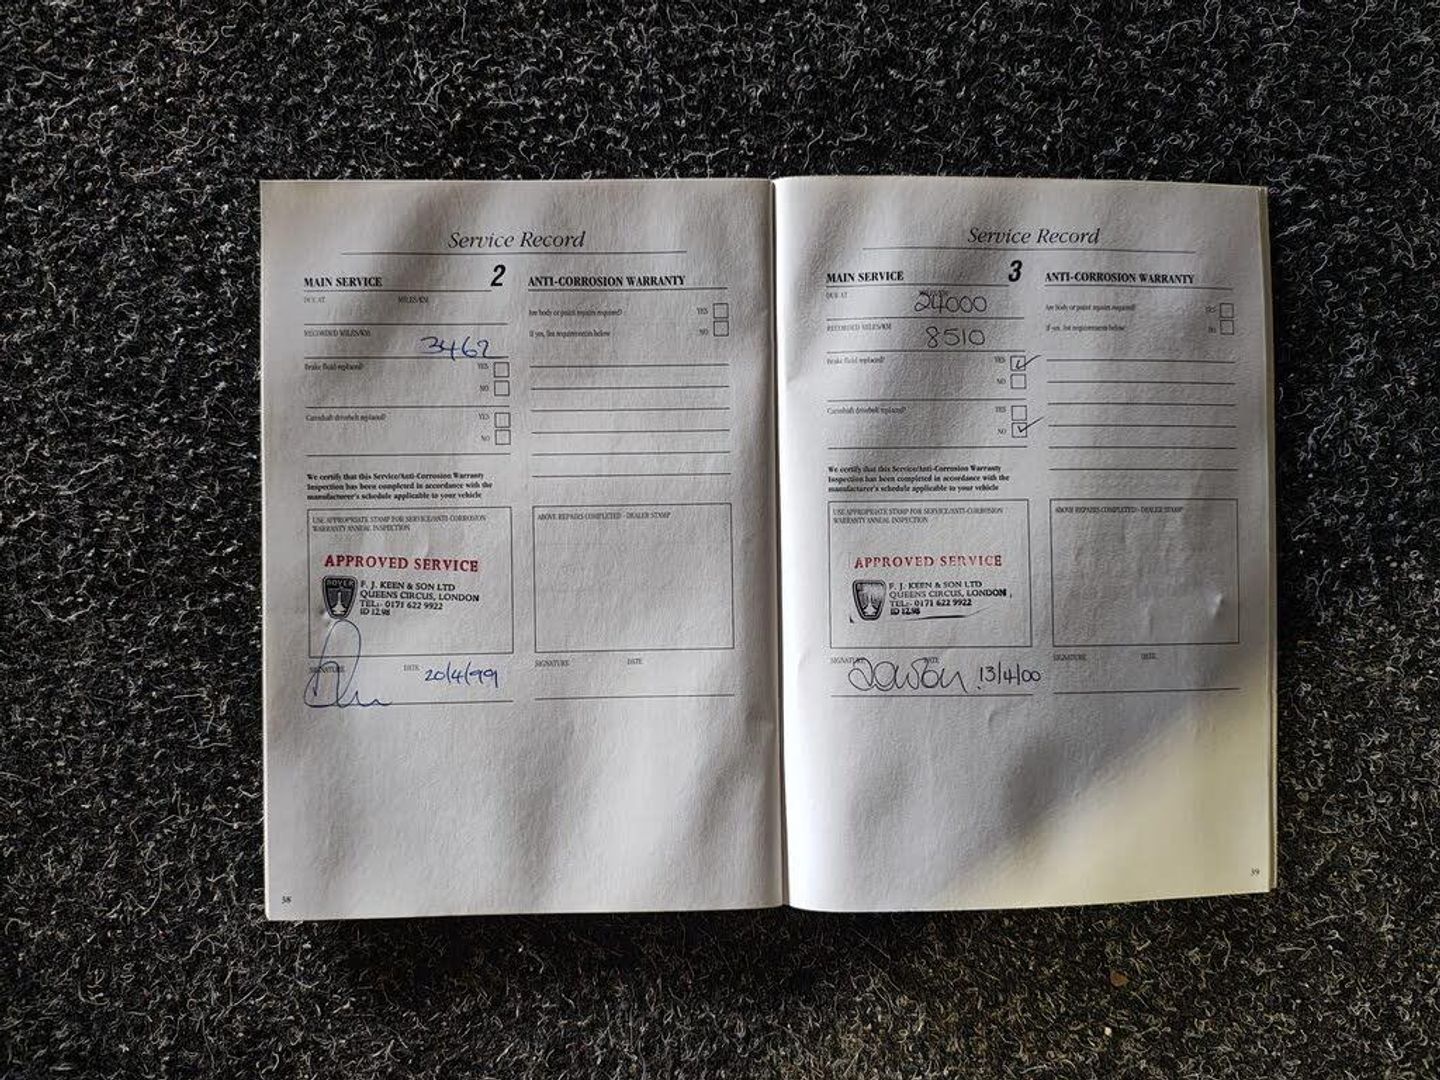 Service Record
MAIN SERVICE 2
DUE AT MILES/KM
RECORDED MILES/KM
3462
Brake fluid replaced? YES
NO
Camshaft drivebelt replaced? YES
NO
We certify that this Service/Anti-Corrosion Warranty
Inspection has been completed in accordance with the
manufacturer's schedule applicable to your vehicle
USE APPROPRIATE STAMP FOR SERVICE/ANTI-CORROSION
WARRANTY ANNUAL INSPECTION
APPROVED SERVICE
ROVER
F. J. KEEN & SON LTD
QUEENS CIRCUS, LONDON
TEL:- 0171 622 9922
ID 1298
SIGNATURE DATE 20/4/99
ANTI-CORROSION WARRANTY
Are body or paint repairs required? YES
If yes, list requirements below NO
ABOVE REPAIRS COMPLETED - DEALER STAMP
SIGNATURE DATE
38
Service Record
MAIN SERVICE 3
DUE AT MILES/KM
24000
RECORDED MILES/KM
8510
Brake fluid replaced? YES
NO
Camshaft drivebelt replaced? YES
NO
We certify that this Service/Anti-Corrosion Warranty
Inspection has been completed in accordance with the
manufacturer's schedule applicable to your vehicle
USE APPROPRIATE STAMP FOR SERVICE/ANTI-CORROSION
WARRANTY ANNUAL INSPECTION
APPROVED SERVICE
F. J. KEEN & SON LTD
QUEENS CIRCUS, LONDON
TEL:- 0171 622 9922
ID 1298
SIGNATURE DATE 13/4/00
ANTI-CORROSION WARRANTY
Are body or paint repairs required? YES
If yes, list requirements below NO
ABOVE REPAIRS COMPLETED - DEALER STAMP
SIGNATURE DATE
39